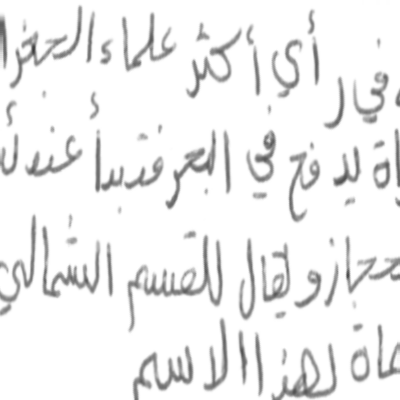 في ر أي أكثر علماء الجغرا
اة يد فع في البحر فتبدأ عند أ
حجاز و يقال للقسم الشمالي
ماة لهذا الاسم